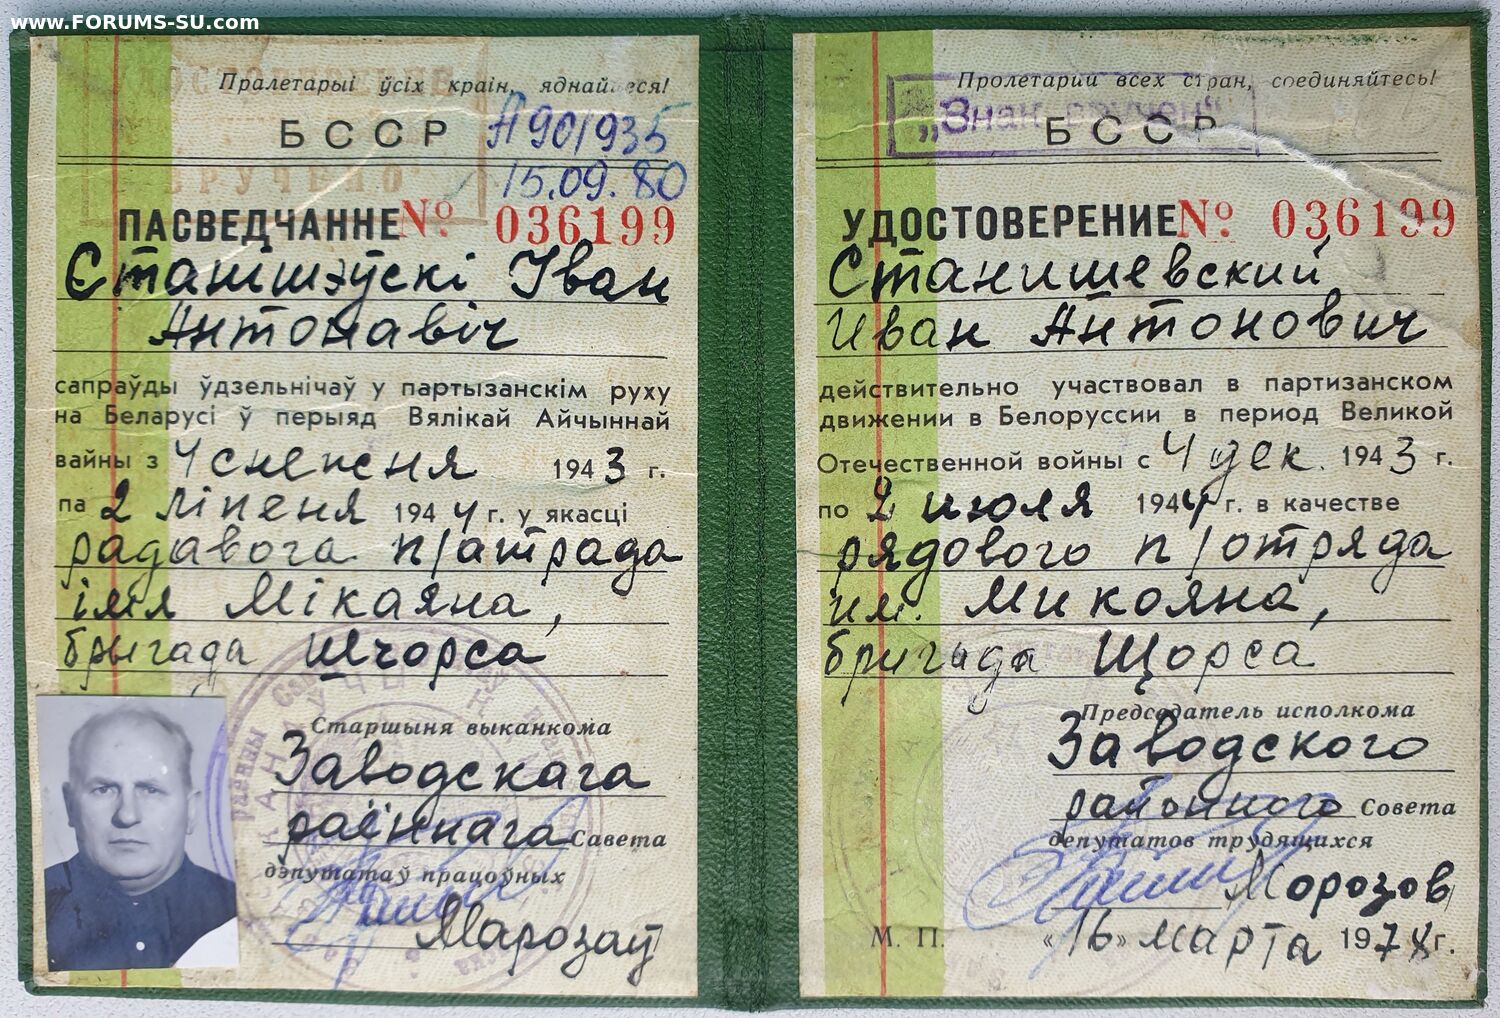 www.FORUMS-SU.com
Пралетарыі ўсіх краін, яднайцеся!
БССР
А 901935
15.09.80
ВРУЧЕНО
ПАСВЕДЧАННЕ № 036199
Станішэўскі Іван
Антонавіч
сапраўды ўдзельнічаў у партызанскім руху
на Беларусі ў перыяд Вялікай Айчыннай
вайны з 4 снежня 1943 г.
па 2 ліпеня 1944 г. у якасці
радавога п/атрада
імя Мікаяна,
брыгада Шчорса
Старшыня выканкома
Заводскага
раённага Савета
дэпутатаў працоўных
Марозаў
Пролетарии всех стран, соединяйтесь!
„Знак вручен"
БССР
УДОСТОВЕРЕНИЕ № 036199
Станишевский
Иван Антонович
действительно участвовал в партизанском
движении в Белоруссии в период Великой
Отечественной войны с 4 дек. 1943 г.
по 2 июля 1944 г. в качестве
рядового п/отряда
им. Микояна,
бригада Щорса
Председатель исполкома
Заводского
районного Совета
депутатов трудящихся
Морозов
М. П. «16» марта 1974 г.